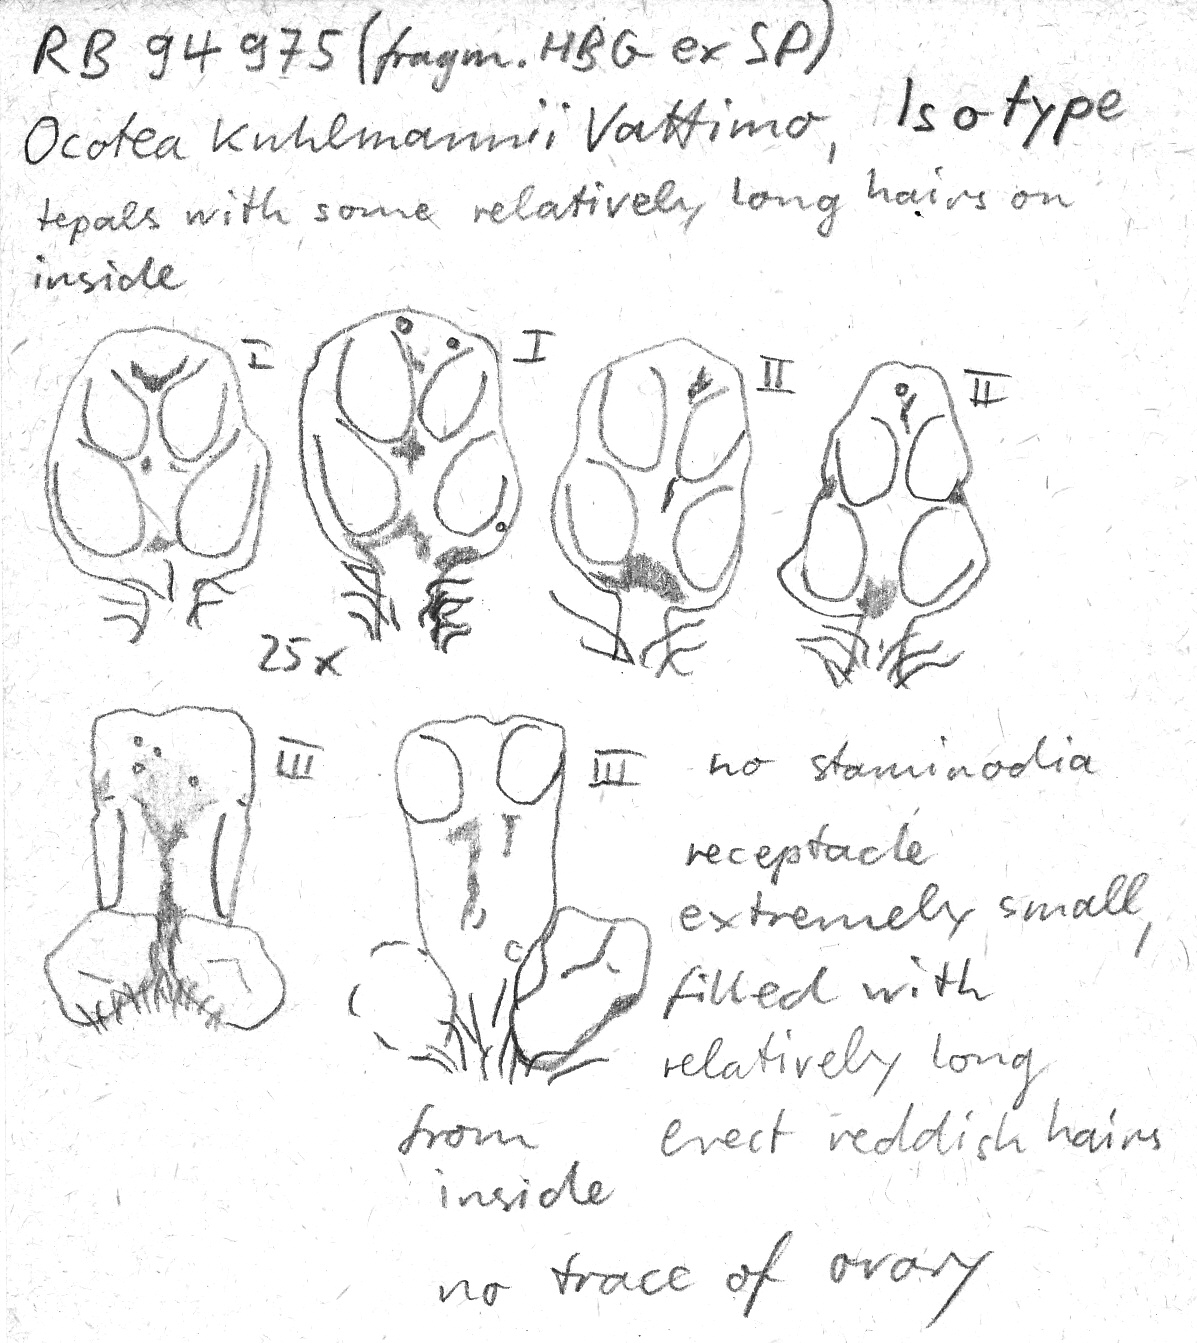 RB 94975 (fragm. HBG ex SP)
Ocotea Kuhlmannii Vattimo, Isotype
tepals with some relatively long hairs on
inside
I I II II
25x
III III no staminodia
receptacle
extremely small,
filled with
relatively long
from erect reddish hairs
inside
no trace of ovary